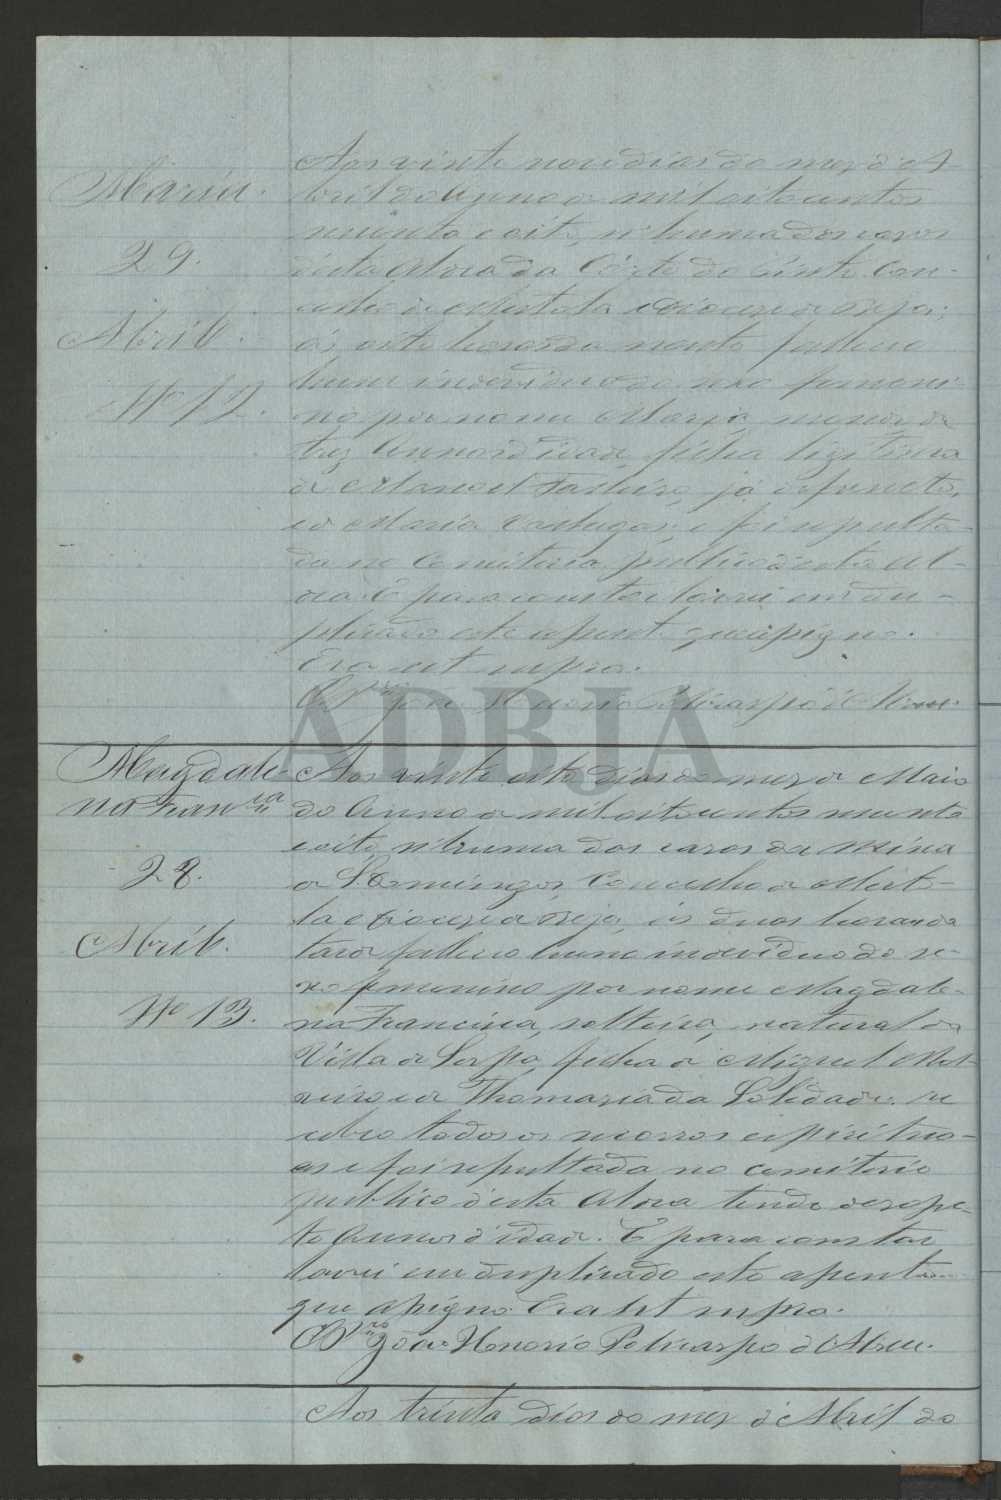 Maria.
29.
Abril.
Nº 12.
Aos vinte nove dias do mez d'A-
bril do Anno de mil oitocentos
noventa e oito, n'huma das casas
d'esta Aldea da Côrte do Pinto Con-
celho de Mertola e Diocese de Beja,
ás oito horas da noute falleceo
hum individuo do sexo femeni-
no por nome Maria, menor de
trez Annos d'idade, filha ligitima
de Manoel já defuncto,
e de Maria e foi sepulta-
da no Cemiterio publico d'esta Al-
dea. E para constar lavrei em du-
plicado este assento, que assigno.
Era ut supra.
O Pro João Honorio Policarpo d'Abreu.
Magdale-
na Franca
28.
Abril.
Nº 13.
Aos vinte oito dias do mez de Maio
do Anno de mil oitocentos noventa
e oito n'huma das casas da Mina
de S. Domingos, Concelho de Merto-
la e Diocese de Beja, ás duas horas da
tarde falleceo hum individuo do se-
xo femenino por nome Magdale-
na Francisca, solteira, natural da
Villa de Serpa, filha de Miguel
e de Thomazia da Soledade. re
cebeo todos os socorros espiritua-
es e foi sepultada no cemiterio
publico d'esta Aldea tendo desese-
te Annos d'idade. E para constar
lavrei em duplicado este assento
que assigno. Era ut supra.
O Pro João Honorio Policarpo d'Abreu.
Aos trinta dias do mez d'Abril do
ADBJA